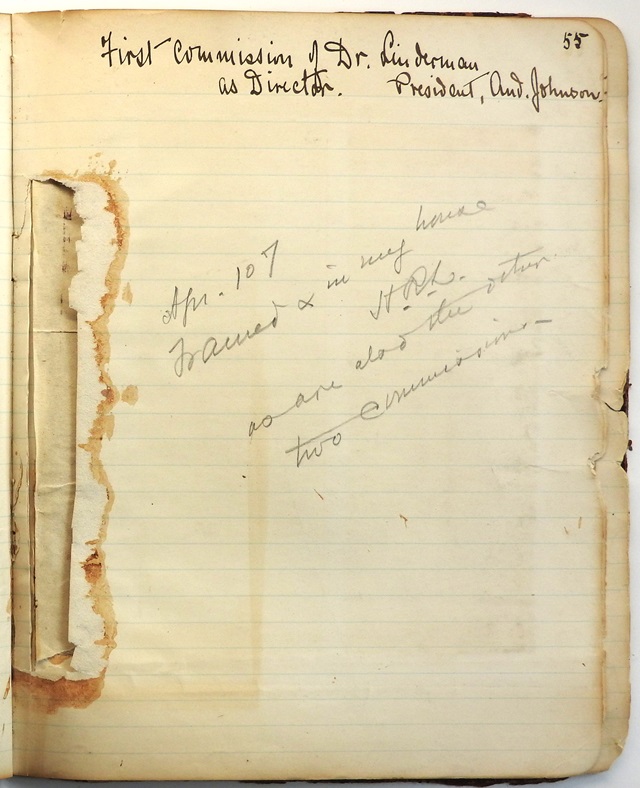 55
First Commission of Dr. Linderman
as Director. President, And. Johnson.
Apr. 107
Framed & in my house
H.R.L.
as are also the other
two Commissions—